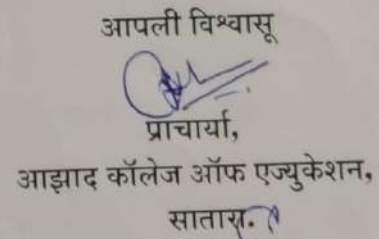 आपली विश्वासू
प्राचार्या,
आझाद कॉलेज ऑफ एज्युकेशन,
सातारा.